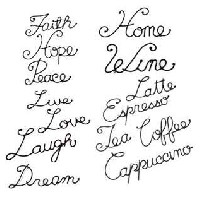 Faith
Hope
Peace
Live
Love
Laugh
Dream
Home
Wine
Latte
Espresso
Tea Coffee
Cappuccino